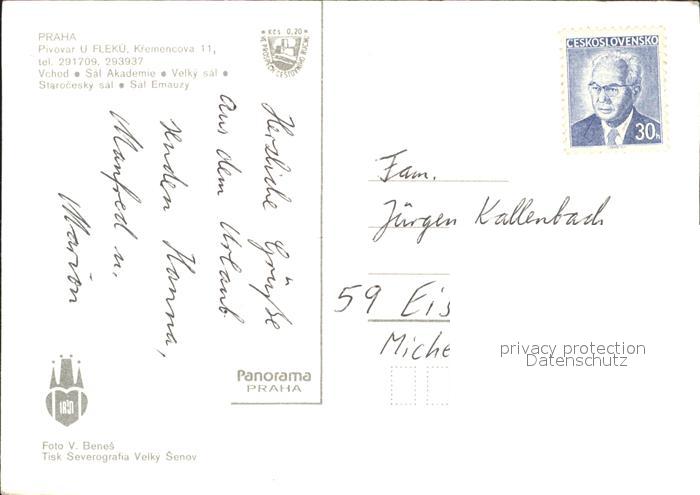 PRAHA
Pivovar U FLEKŮ, Křemencova 11,
tel. 291709, 293937
Vchod • Sál Akademie • Velký sál •
Staročeský sál • Sál Emauzy
Kčs 0,20
VE PROSPĚCH CESTOVNÍHO RUCHU
ČESKOSLOVENSKO
30h
Herzliche Grüße
aus dem Urlaub
senden Hanna,
Manfred u.
Marion
Fam.
Jürgen Kallenbach
59 Eis
Miche
privacy protection
Datenschutz
Panorama
PRAHA
Foto V. Beneš
Tisk Severografia Velký Šenov